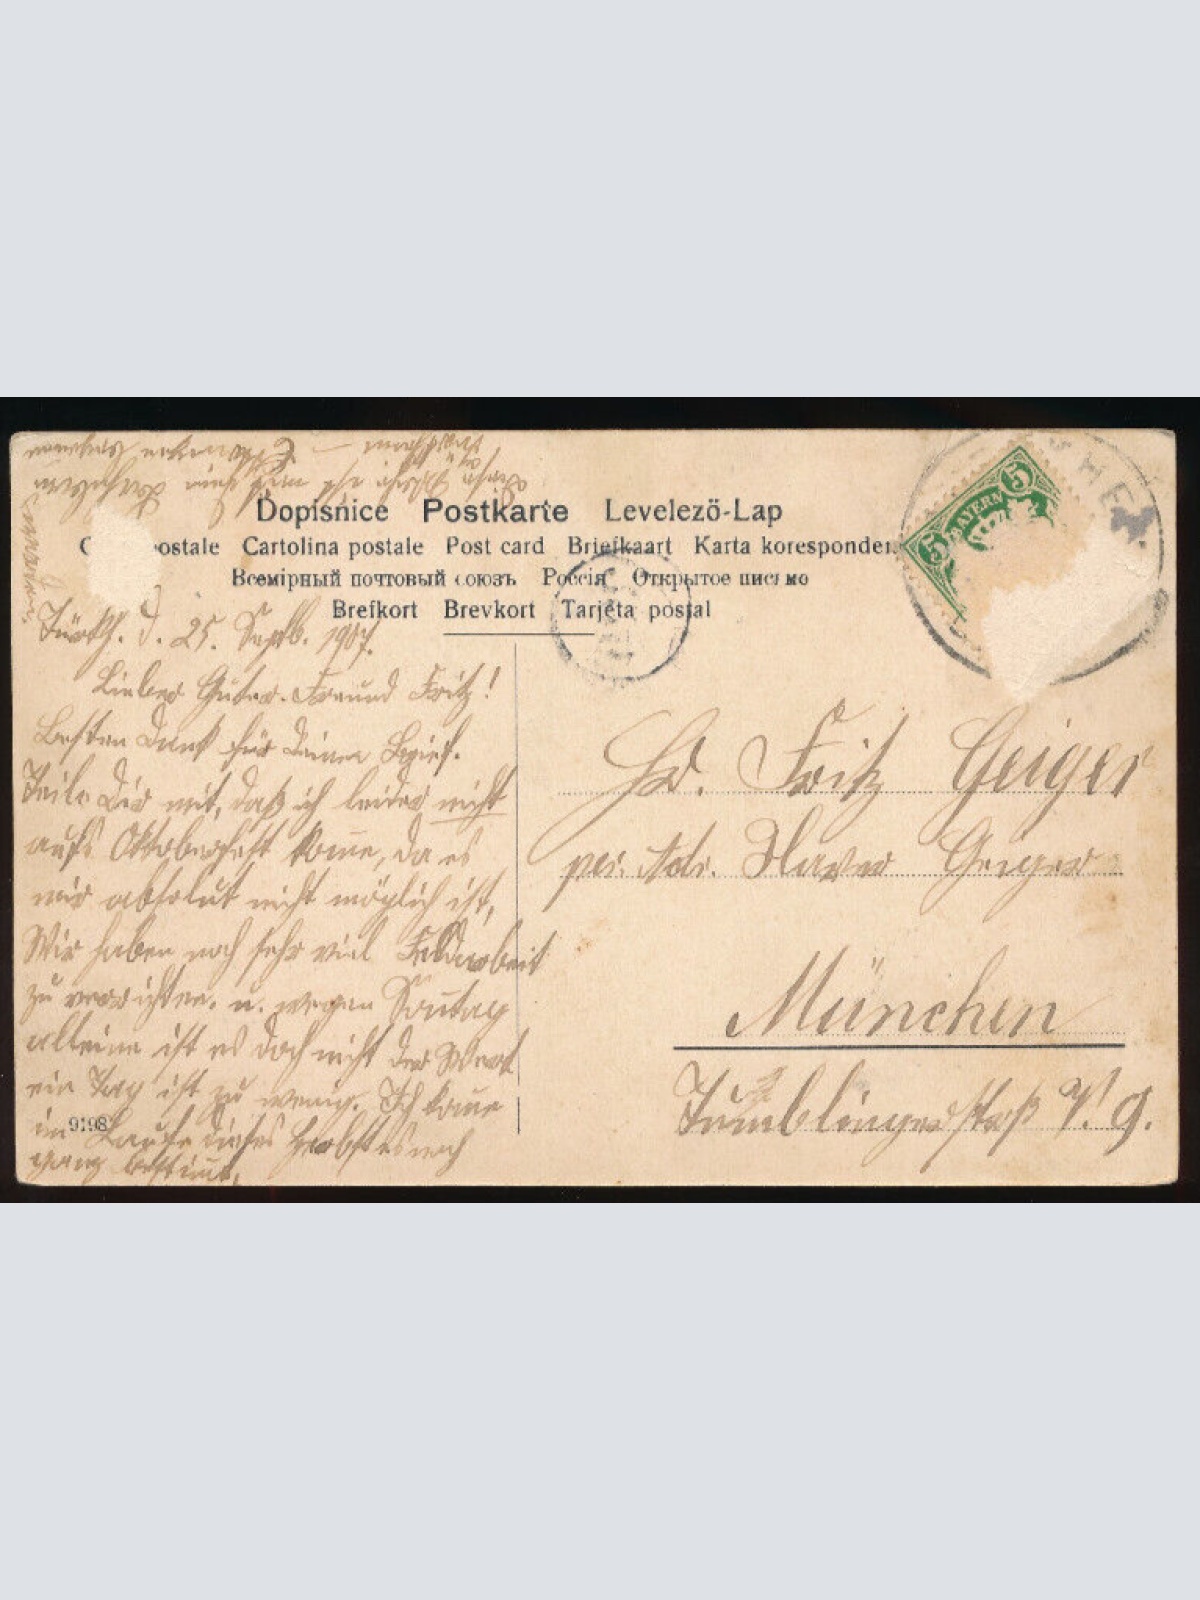 Dopisnice Postkarte Levelező-Lap
postale Cartolina postale Post card Briefkaart Karta koresponden
Всемірный почтовый союзъ Россія Открытое письмо
Brefkort Brevkort Tarjeta postal
Türkh. d. 25. Septb. 1907.
Lieber Guter Freund Fritz!
Besten Dank für Deinen Brief.
Teile Dir mit, daß ich leider nicht
aufs Oktoberfest kom̅e, da es
mir absolut nicht möglich ist,
Wir haben noch sehr viel Feldarbeit
zu verrichten. u. wegen Son̅tag
alleine ist es doch nicht der Wert
ein Tag ist zu wenig. Ich kom̅e
im Laufe dieses Herbstes noch
ganz bestim̅t.
9198
5 BAYERN 5
HEI
Hr. Fritz Geiger
per. Adr. Xaver Geiger
München
Tumblingerstraß